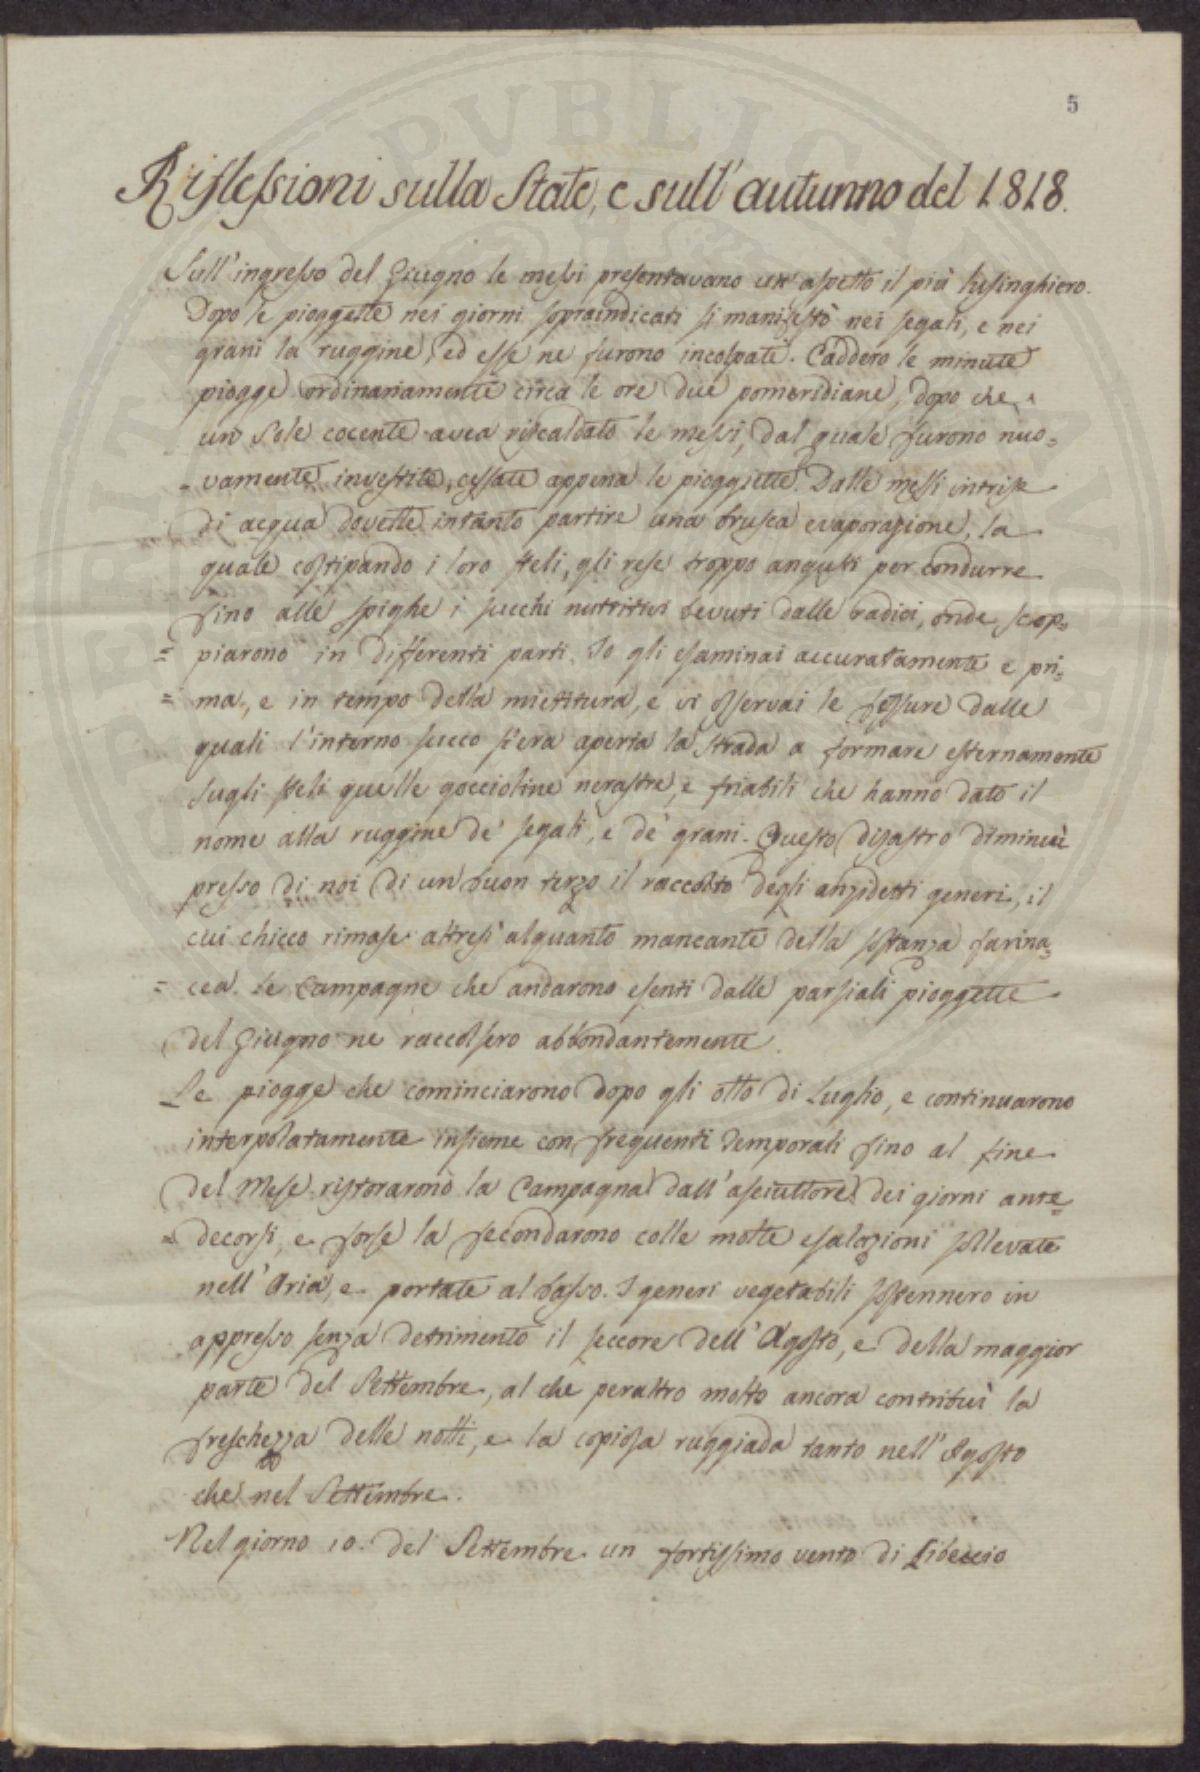 5
Riflessioni sulla State, e sull'autunno del 1818.
Sull'ingresso del Giugno le messi presentavano un'aspetto il più lusinghiero.
Dopo le pioggette nei giorni sopraindicati si manifestò nei segali, e nei
grani la ruggine, ed esse ne furono incolpate. Caddero le minute
piogge ordinariamente circa le ore due pomeridiane, dopo che
un Sole cocente avea riscaldato le messi, dal quale furono nuo=
=vamente investite, cessate appena le pioggiette. Dalle messi intrise
di acqua dovette intanto partire una brusca evaporazione, la
quale costipando i loro steli, gli rese troppo angusti per condurre
fino alle spighe i succhi nutritivi bevuti dalle radici, onde scop=
=piarono in differenti parti. Io gli esaminai accuratamente e pri=
=ma, e in tempo della mietitura, e vi osservai le fessure dalle
quali l'interno succo s'era aperta la strada a formare esternamente
sugli steli quelle goccioline nerastre, e friabili che hanno dato il
nome alla ruggine de' segali, e de' grani. Questo disastro diminuì
presso di noi di un buon terzo il raccolto degli anzidetti generi, il
cui chicco rimase altresì alquanto mancante della sostanza farina=
=cea. Le Campagne che andarono esenti dalle parziali pioggette
del Giugno ne raccolsero abbondantemente.
Le piogge che cominciarono dopo gli otto di Luglio, e continuarono
interpolatamente insieme con frequenti temporali fino al fine
del Mese ristorarono la Campagna dall'asciuttore dei giorni ante=
=decorsi, e forse la fecondarono colle molte esalazioni sollevate
nell'Aria, e portate al basso. I generi vegetabili sostennero in
appresso senza detrimento il seccore dell'Agosto, e della maggior
parte del Settembre, al che peraltro molto ancora contribuì la
freschezza delle notti, e la copiosa ruggiada tanto nell'Agosto
che nel Settembre.
Nel giorno 10. del Settembre un fortissimo vento di Libeccio